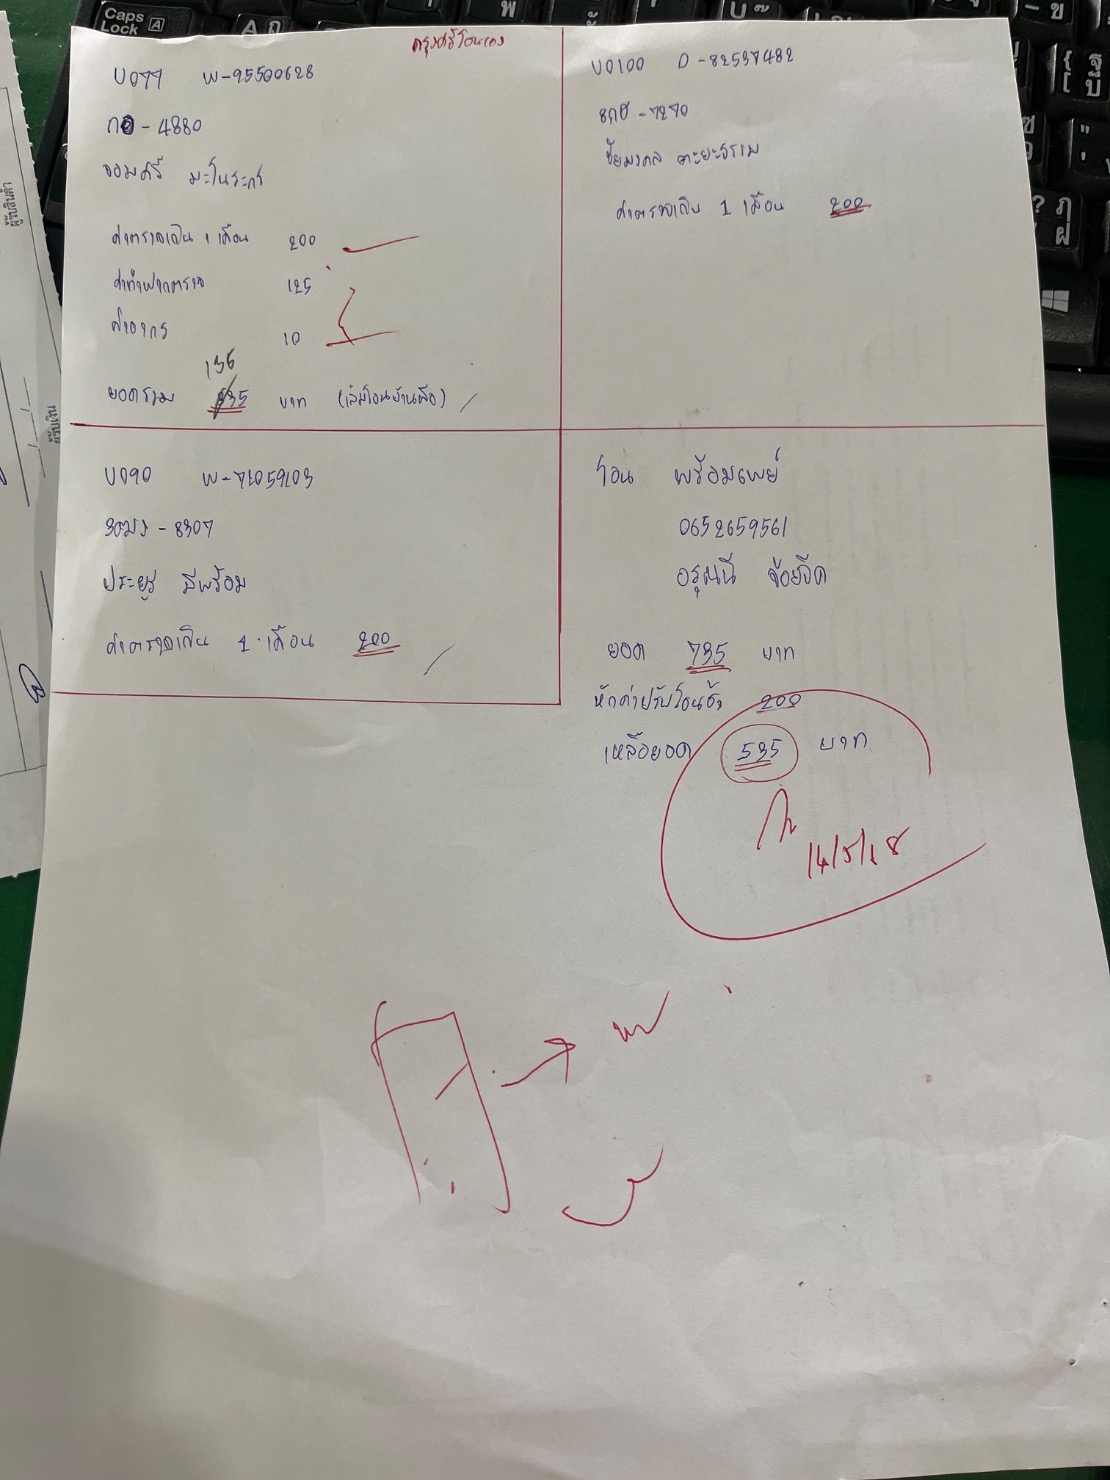 กรุงศรีโอนเอง
U077 W-95500628
กอ-4880
จอมศรี มะโนระกา
ค่าตรวจเงิน 1 เดือน 200
ค่าทำฝากตรวจ 125
ค่าอากร 10
135
ยอดรวม 335 บาท
U0100 D-82537482
8กฮ-7270
ชัยมงคล
ค่าตรวจเงิน 1 เดือน 200
U090 W-71059103
3ฒง-8307
ประยูร สีพร้อม
ค่าตรวจเงิน 1 เดือน 200
โอน พร้อมเพย์
0652659561
อรุณนี จ้อยจีด
ยอด 735 บาท
หักค่าปรับโอนช้า 200
เหลือยอด 535 บาท
14/5/68
Caps Lock
ผู้รับสินค้า
ผู้รับเงิน